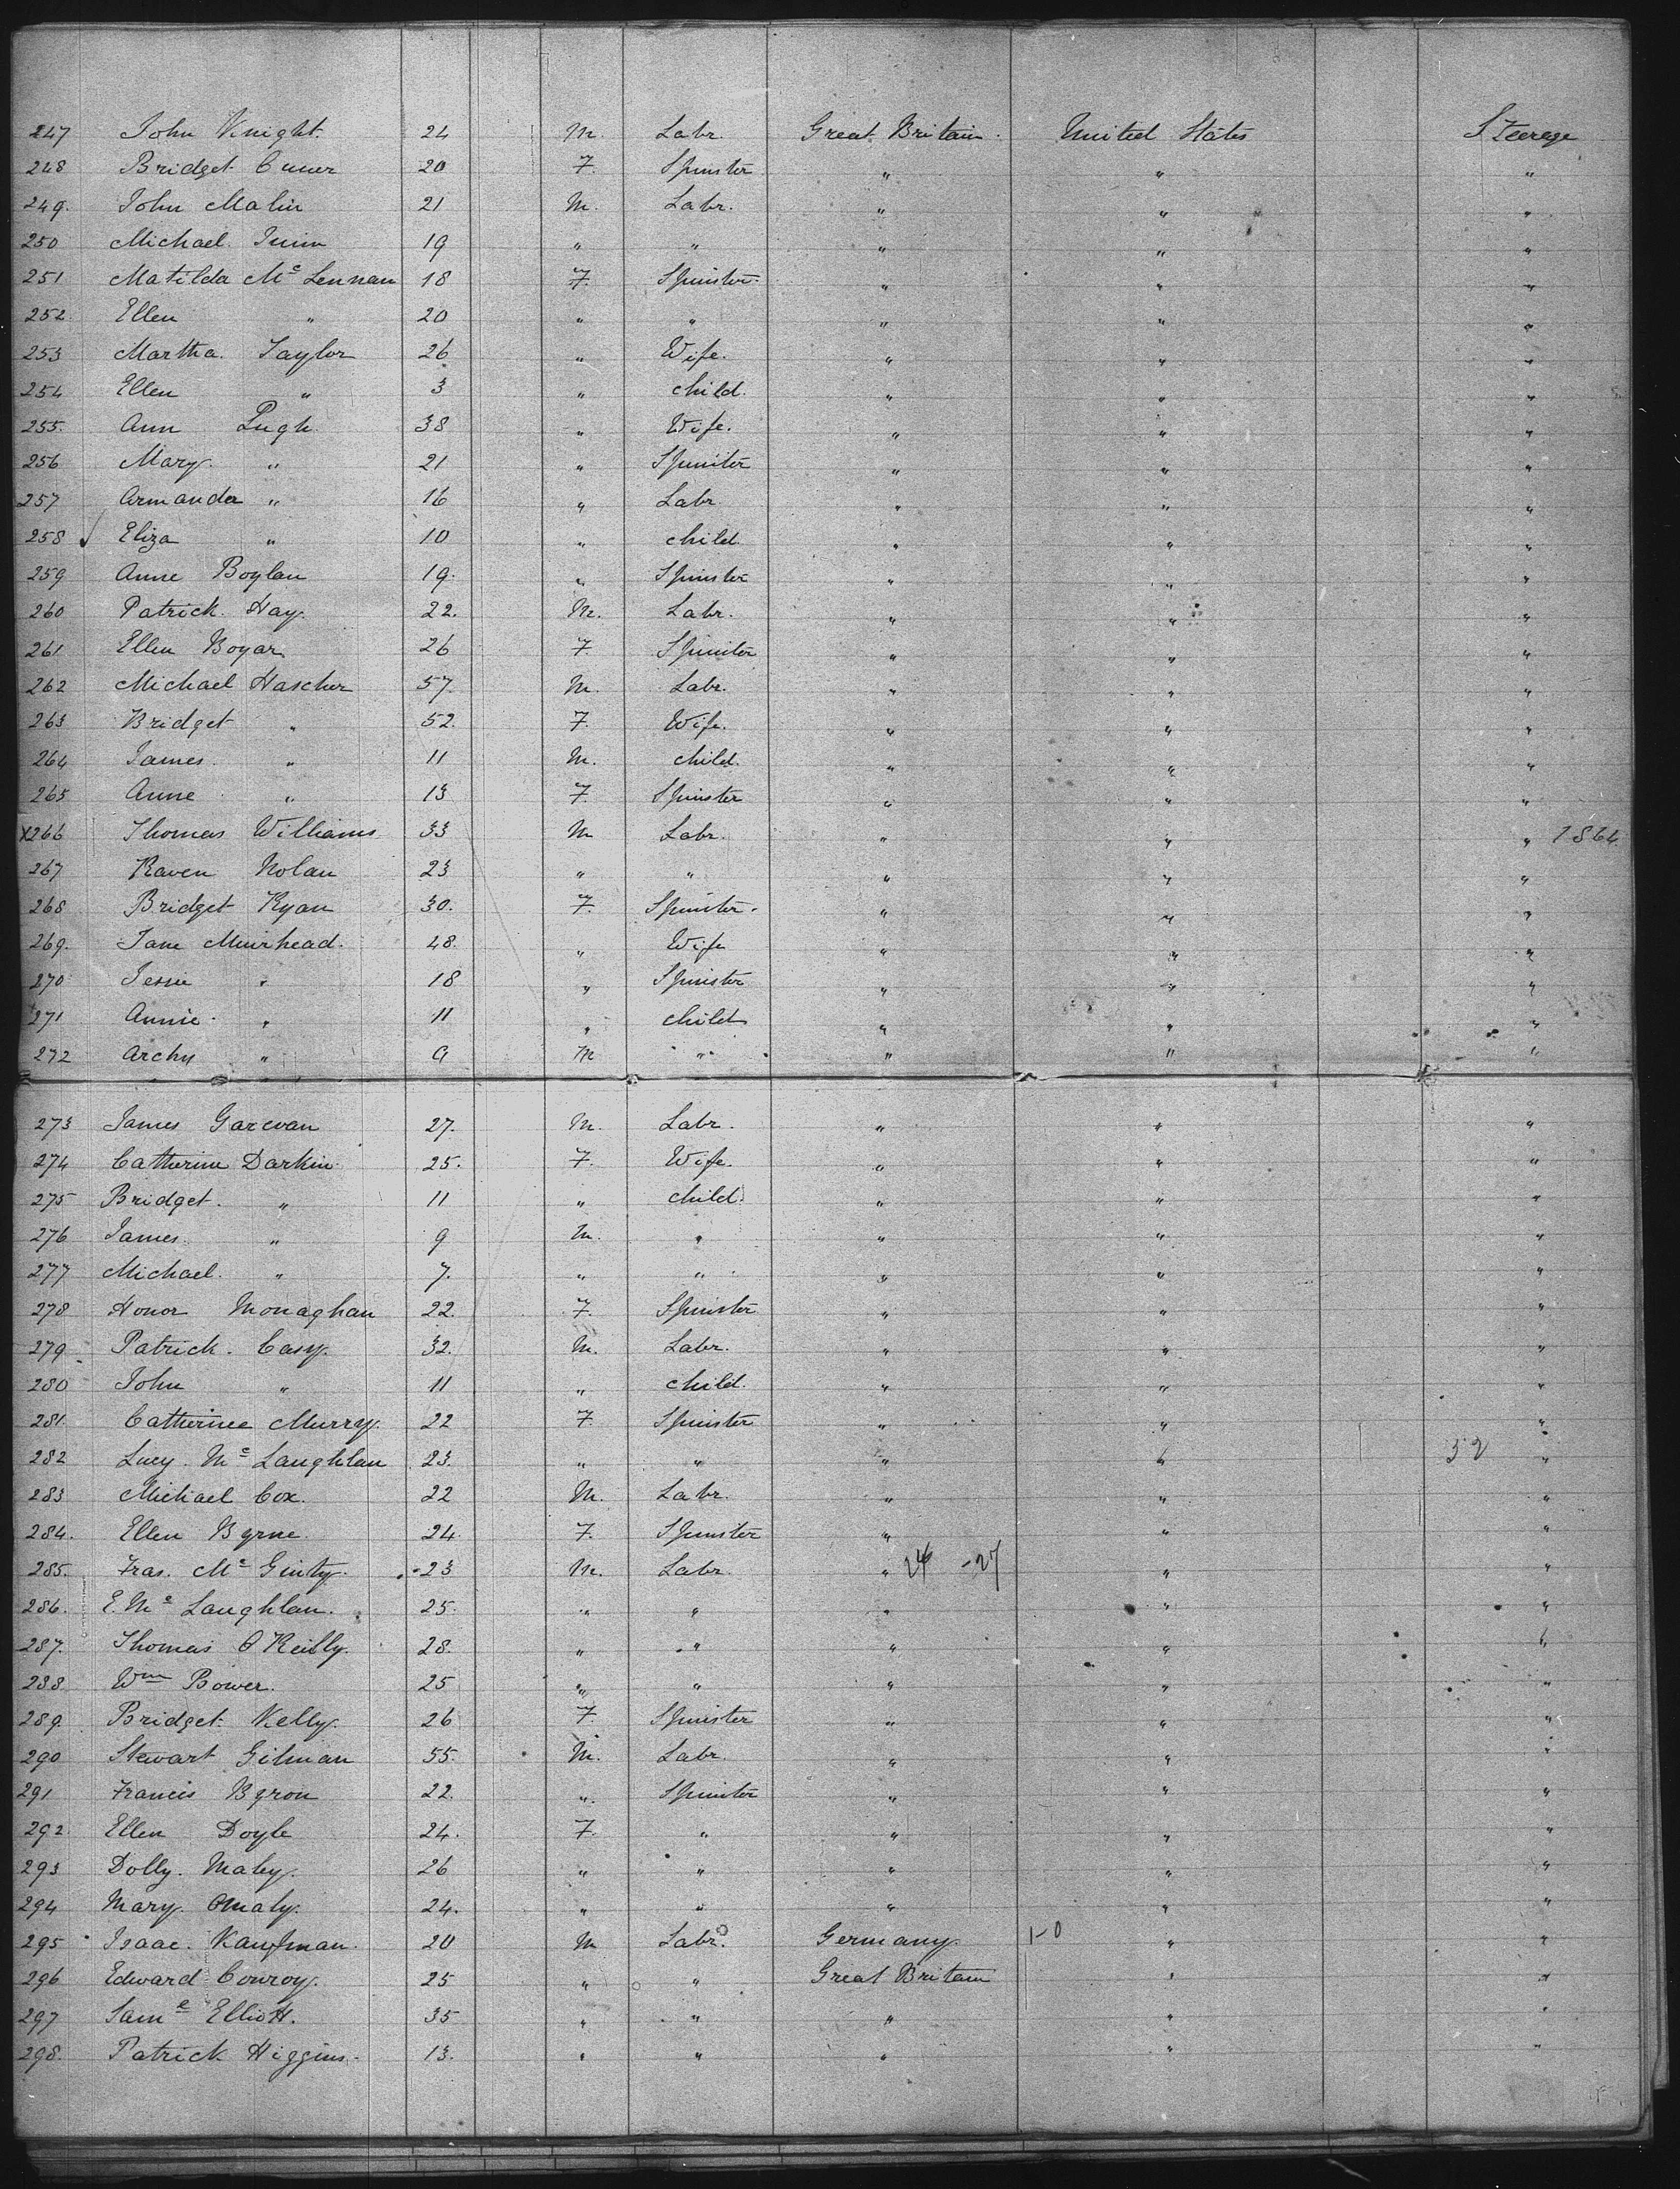 247 John Knight 24 M. Labr. Great Britain United States Steerage
248 Bridget Cuner 20 F. Spinster " " "
249. John Malin 21 M. Labr. " " "
250 Michael Quinn 19 " " " " "
251 Matilda Mc Lennan 18 F. Spinster " " "
252. Ellen " 20 " " " " "
253 Martha. Taylor 26 " Wife. " " "
254 Ellen " 3 " child. " " "
255. Ann Pugh 38 " Wife. " " "
256 Mary. " 21 " Spinster " " "
257 Armanda " 16 " Labr. " " "
258 Eliza " 10 " child. " " "
259 Anne Boylan 19. " Spinster " " "
260 Patrick. Hay. 22. M. Labr. " " "
261 Ellen Boyar 26 F. Spinster " " "
262 Michael Hascher 57 M. Labr. " " "
263 Bridget " 52. F. Wife. " " "
264 James. " 11 M. child. " " "
265 Anne " 13 F. Spinster " " "
X266 Thomas Williams 33 M Labr. " " " 1864
267 Raven Nolan 23 " " " " "
268 Bridget Ryan 30. F. Spinster. " " "
269. Jane Muirhead. 48. " Wife " " "
270 Jessie " 18 " Spinster " " "
271 Annie. " 11 " child " " "
272 Archy " 9 M " " " "
273 James Garevan 27. M. Labr. " " "
274 Catherine Darkin. 25. F. Wife. " " "
275 Bridget. " 11 " child. " " "
276 James. " 9 M. " " " "
277 Michael. " 7. " " " " "
278 Honor Monaghan 22. F. Spinster " " "
279 Patrick. Casy. 32. M. Labr. " " "
280 John " 11 " child. " " "
281. Catherine Murry. 22 F. Spinster " " "
282 Lucy. Mc Laughlan 23. " " " " 32 "
283 Michael Cox. 22 M. Labr. " " "
284. Ellen Byrne. 24 F. Spinster " " "
285. Fras. Mc Ginty. 23 M. Labr. " 24 -27 " "
286. E. Mc Laughlan. 25. " " " " "
287. Thomas O'Reilly. 28. " " " " "
288 Wm Bower. 25 " " " " "
289. Bridget. Kelly. 26 F. Spinster " " "
290 Stewart Gilman 55. M. Labr. " " "
291 Francis Byron 22. " Spinster " " "
292. Ellen Doyle 24. F. " " " "
293 Dolly. Maley. 26 " " " " "
294 Mary. Omaly. 24. " " " " "
295 Isaac. Kaufman. 20 M Labr. Germany. 1-0 " "
296 Edward Conroy. 25 " " Great Britain " "
297 Same Elliott. 35 " " " " "
298. Patrick Higgins. 13. " " " " "